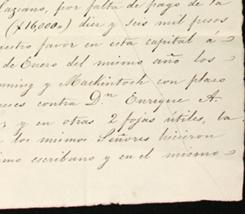 azano, por falta de pago de la
($16,000..) diez y seis mil pesos
uestro favor en esta capital á
de Enero del mismo año los
nning y Mackintosh con plazo
eses contra Dn Enrique A.
y en otras 2 fojas útiles, la
los mismos Señores hicieron
smo escribano y en el mismo